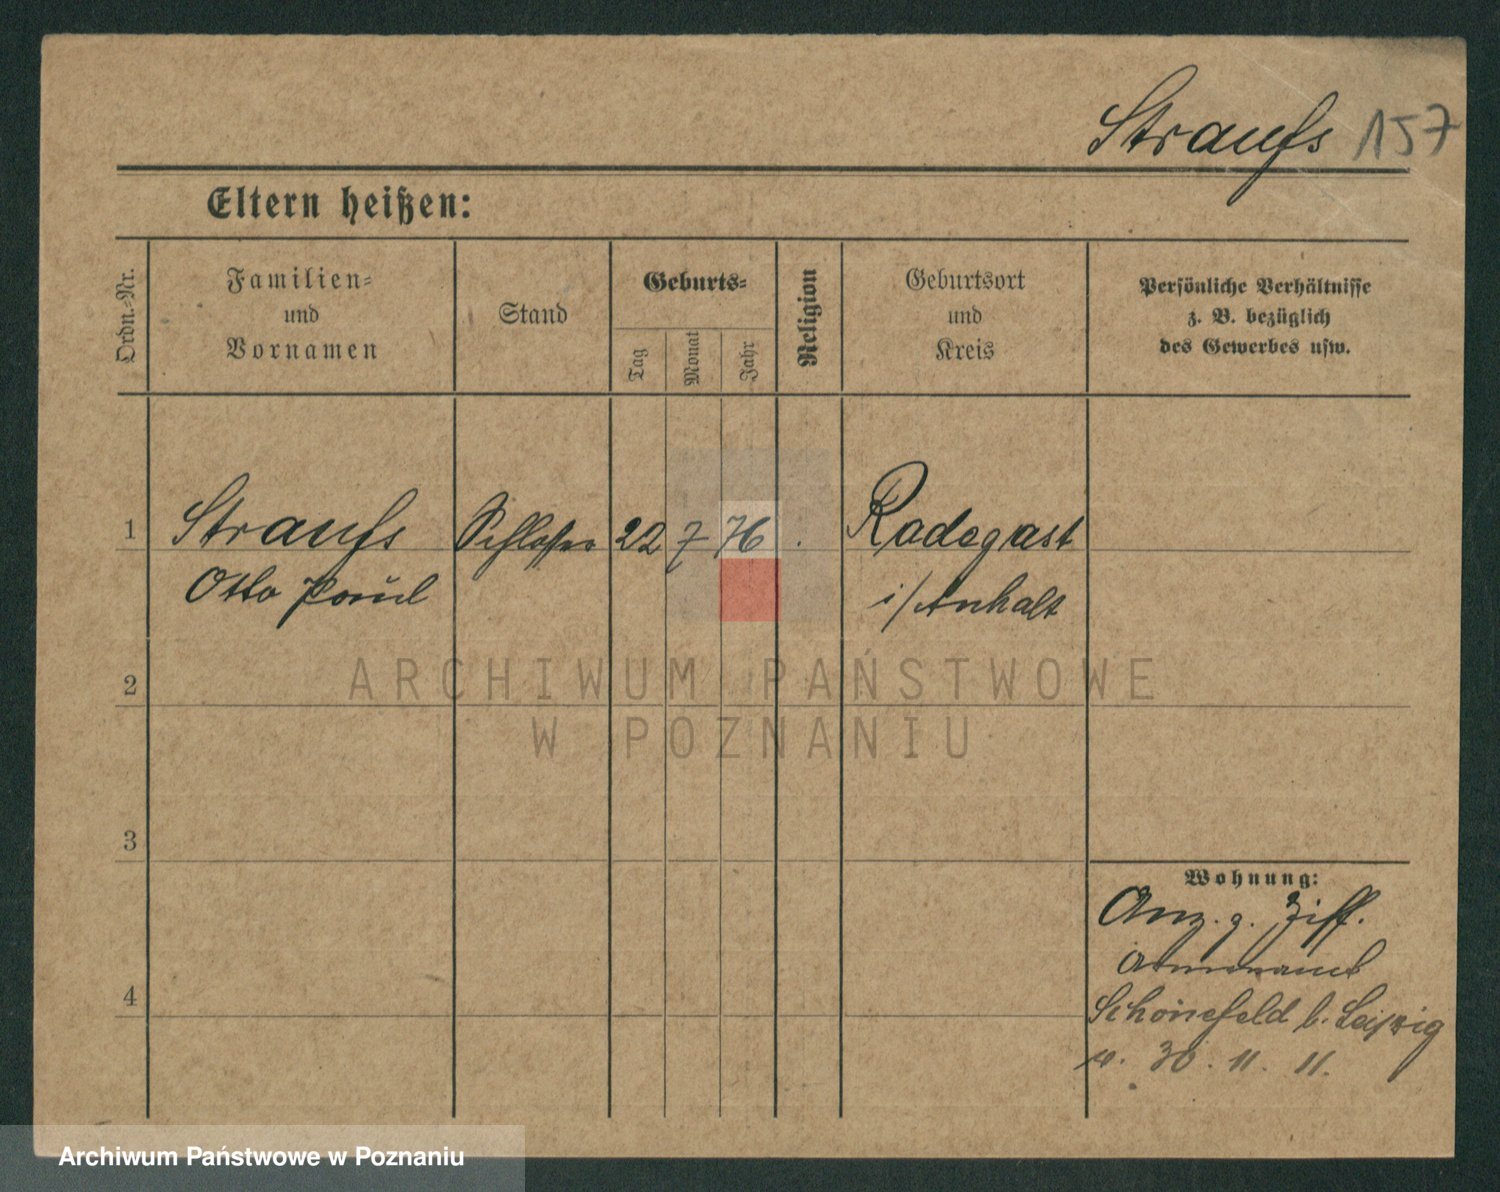 Straufs 157
Eltern heißen:
Ordn.-Nr.
Familien-
und
Vornamen
Stand
Geburts-
Tag
Monat
Jahr
Religion
Geburtsort
und
Kreis
Persönliche Verhältnisse
z. B. bezüglich
des Gewerbes usw.
1 Straufs Schlosser 22 7 76 Radegast
Otto Paul i/Anhalt
ARCHIWUM PAŃSTWOWE
W POZNANIU
2
3
Wohnung:
Anz. z. Ziff.
Armenamt
4
Schönefeld b. Leipzig
v. 30. 11. 11.
Archiwum Państwowe w Poznaniu